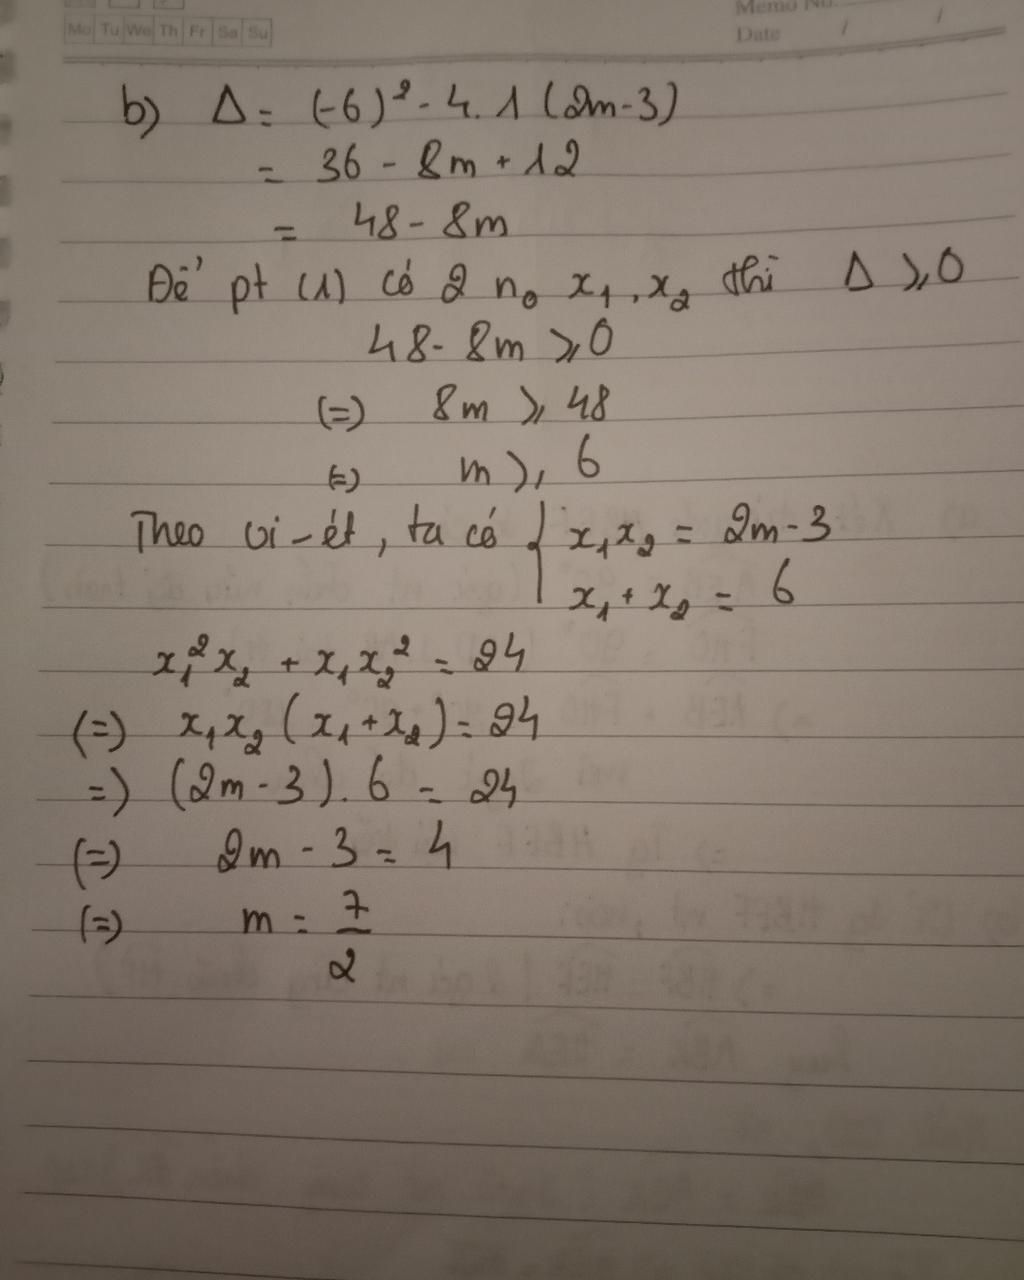 Memo No.
Mo Tu We Th Fr Sa Su
Date / /
b) Δ = (-6)² - 4. 1 (2m-3)
= 36 - 8m + 12
= 48 - 8m
Để pt (1) có 2 n₀ x₁, x₂ thì Δ ⩾ 0
48 - 8m ⩾ 0
(=) 8m ⩾ 48
(=) m ⩾ 6
Theo vi-ét, ta có { x₁x₂ = 2m-3
x₁ + x₂ = 6
x₁²x₂ + x₁x₂² = 24
(=) x₁x₂ (x₁+x₂) = 24
=) (2m - 3). 6 = 24
(=) 2m - 3 = 4
(=) m = 7/2